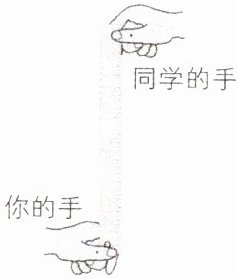 同学的手
你的手